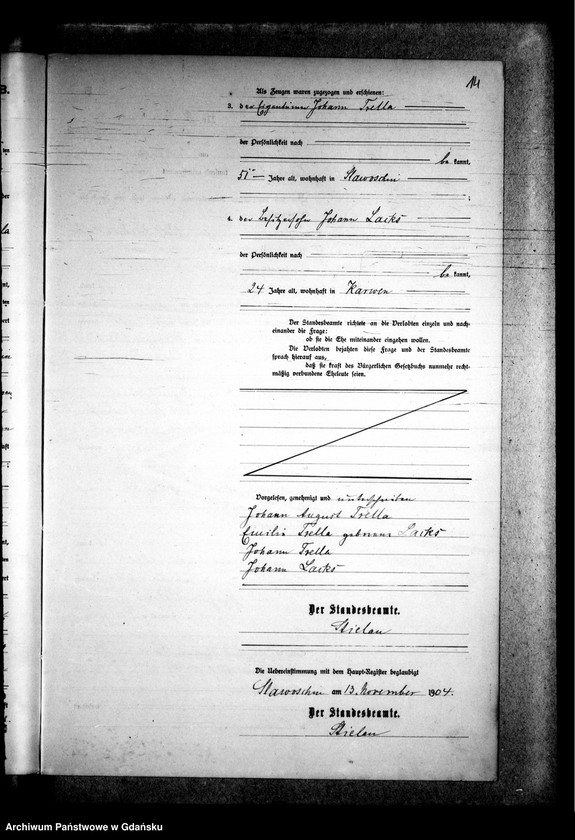 14
Als Zeugen waren zugezogen und erschienen:
3. der Eigentümer Johann Trella
der Persönlichkeit nach
be kannt,
51 Jahre alt, wohnhaft in Slawoschin
;
4. der Besitzersohn Johann Laiks
der Persönlichkeit nach
be kannt,
24 Jahre alt, wohnhaft in Karwen
Der Standesbeamte richtete an die Verlobten einzeln und nach-
einander die Frage:
ob sie die Ehe miteinander eingehen wollen.
Die Verlobten bejahten diese Frage und der Standesbeamte
sprach hierauf aus,
daß sie kraft des Bürgerlichen Gesetzbuchs nunmehr recht-
mäßig verbundene Eheleute seien.
Vorgelesen, genehmigt und unterschrieben
Johann August Trella
Emilie Trella geborene Laiks
Johann Trella
Johann Laiks
Der Standesbeamte.
Stielau
Die Uebereinstimmung mit dem Haupt-Register beglaubigt
Slawoschin am 13. November 1904.
Der Standesbeamte.
Stielau
Archiwum Państwowe w Gdańsku